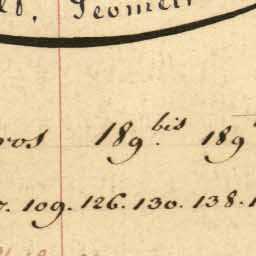 Geometr
ros 189 bis. 189
109. 126. 130. 138.